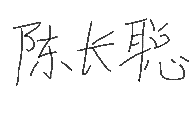 陈长聪